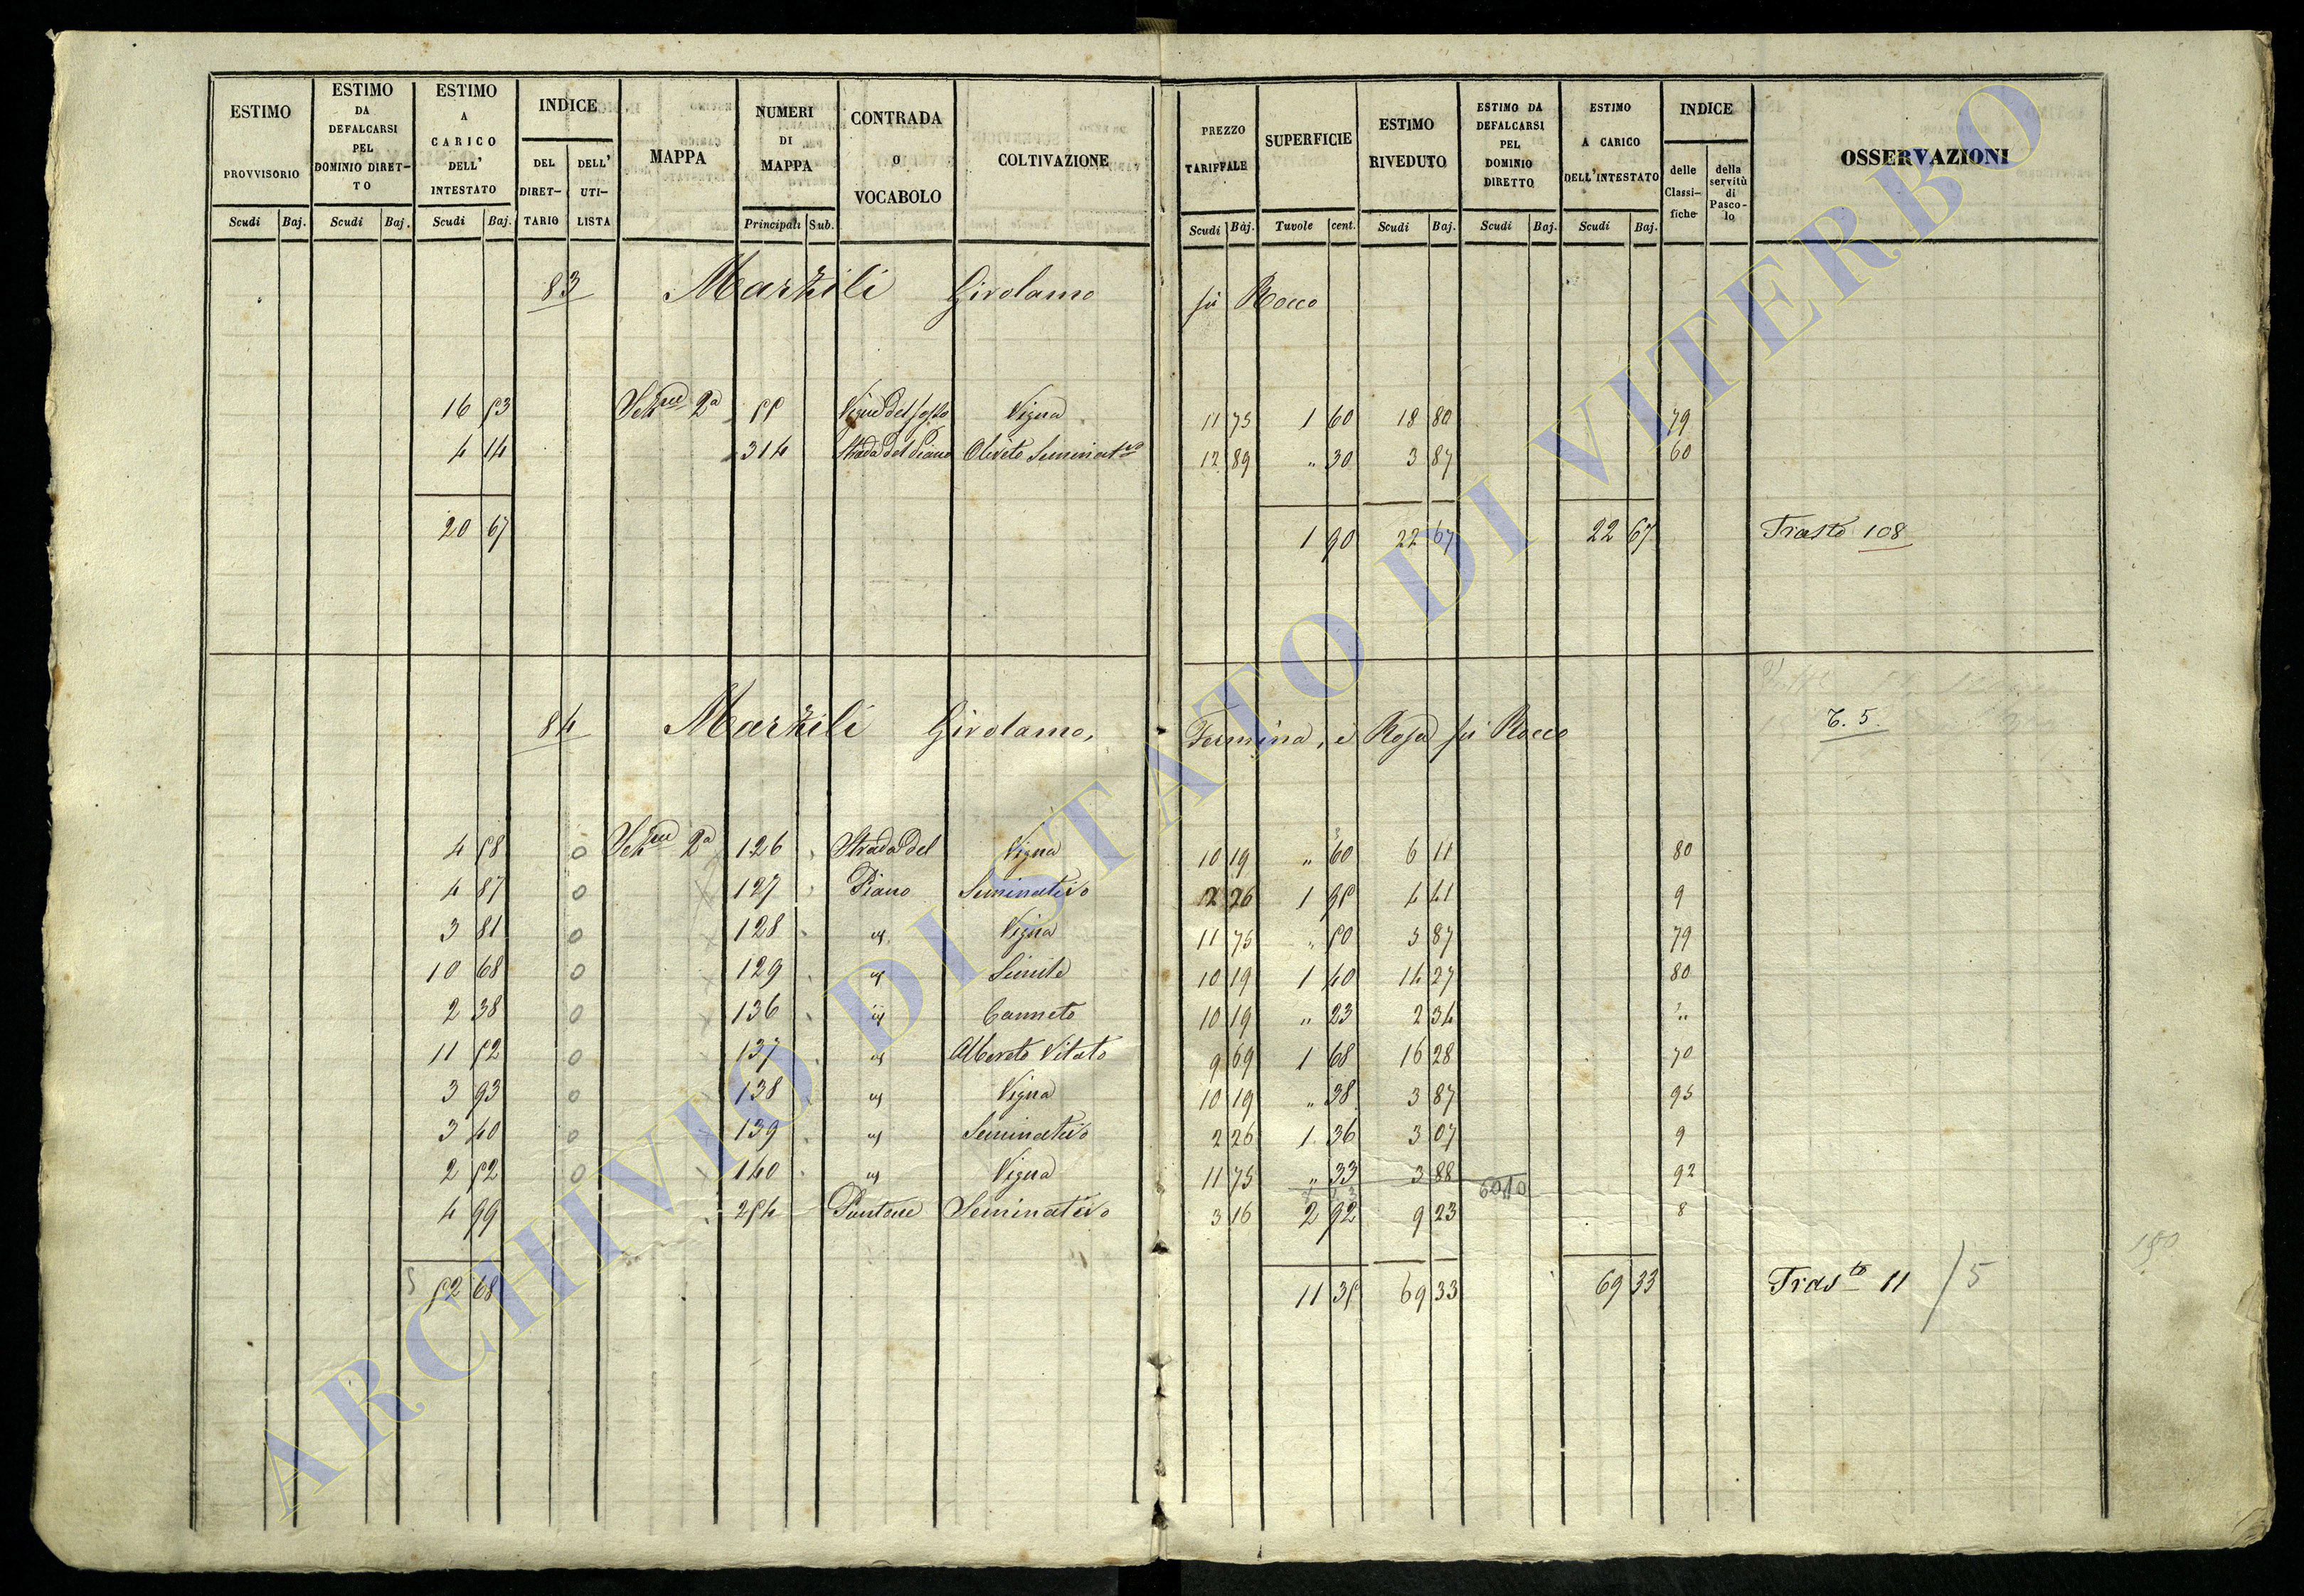 ESTIMO PROVVISORIO | ESTIMO DA DEFALCARSI PEL DOMINIO DIRETTO | ESTIMO A CARICO DELL' INTESTATO | INDICE DEL DIRETTARIO | DELL' UTILISTA | MAPPA | NUMERI DI MAPPA | CONTRADA O VOCABOLO | COLTIVAZIONE | PREZZO TARIFFALE | SUPERFICIE | ESTIMO RIVEDUTO | ESTIMO DA DEFALCARSI PEL DOMINIO DIRETTO | ESTIMO A CARICO DELL'INTESTATO | INDICE delle Classifiche | della servitù di Pascolo | OSSERVAZIONI
Scudi Baj. | Scudi Baj. | Scudi Baj. | Principali Sub. | Scudi Baj. | Tavole cent. | Scudi Baj. | Scudi Baj. | Scudi Baj.
83 Marzili Girolamo fù Rocco
16 53 2a 55 Vigna 11 75 1 60 18 80 79
4 14 314 Strada del Piano Oliveto Seminato 12 89 " 30 3 87 60
20 67 1 90 22 67 22 67 Trasto 108
84 Marzili Girolamo, e Rosa fù Rocco T. 5.
4 58 0 2a 126 Strada del Vigna 10 19 " 60 6 11 80
4 87 0 127 Piano Seminativo 2 26 1 95 4 41 9
3 81 0 128 Vigna 11 75 " 50 3 87 79
10 68 0 129 Simile 10 19 1 40 14 27 80
2 38 0 136 Canneto 10 19 " 23 2 34 "
11 52 0 137 Albereto Vitato 9 69 1 68 16 28 70
3 93 0 138 Vigna 10 19 " 38 3 87 95
3 40 0 139 Seminativo 2 26 1 36 3 07 9
2 52 0 140 Vigna 11 75 " 33 3 88 92
60 10
4 99 254 Pantane Seminativo 3 16 2 92 9 23 8
52 68 11 35 69 33 69 33 Trasto 11 / 5
150
ARCHIVIO DI STATO DI VITERBO